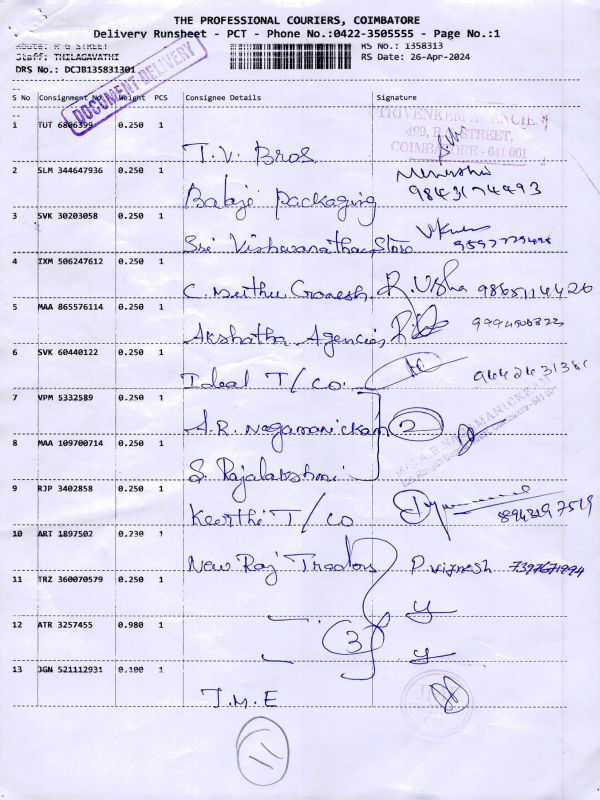 THE PROFESSIONAL COURIERS, COIMBATORE
Delivery Runsheet - PCT - Phone No.:0422-3505555 - Page No.:1
Route: R G STREET RS No.: 1358313
Staff: THILAGAVATHI RS Date: 26-Apr-2024
DRS No.: DCJB135831301
DOCUMENT DELIVERY
S No Consignment No Weight PCS Consignee Details Signature
1 TUT 6806399 0.250 1 T.V. Bros
TRIVENKEM AGENCIES
499, R.G. STREET,
COIMBATORE - 641 001
2 SLM 344647936 0.250 1 Balaji Packaging 9843174493
3 SVK 30203058 0.250 1 Sri Vishwanathan Store
4 IXM 506247612 0.250 1 C. Muthu Ganesh R. Usha 9865114426
5 MAA 865576114 0.250 1 Akshatha Agencies
6 SVK 60440122 0.250 1 Ideal T/Co.
7 VPM 5332589 0.250 1 A.R. Nagamanickam 2
8 MAA 109700714 0.250 1 S. Rajalakshmi
9 RJP 3402858 0.250 1 Keerthi T/Co
10 ART 1897502 0.230 1 New Raj Traders P. Vignesh
11 TRZ 360070579 0.250 1
12 ATR 3257455 0.980 1 3
13 JGN 521112931 0.100 1 T.M.E
11